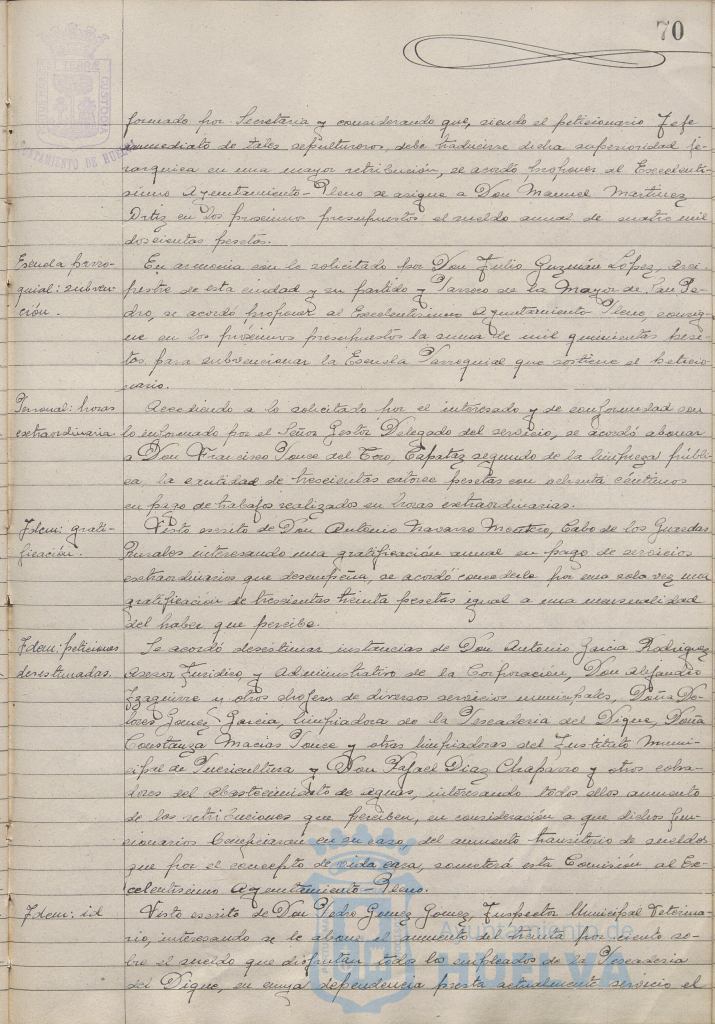 70
formado por Secretaría y considerando que, siendo el peticionario Jefe
inmediato de tales sepultureros, debe traducirse dicha superioridad je-
rarquica en una mayor retribución, se acordó proponer al Excelentí-
simo Ayuntamiento-Pleno se asigne a Don Manuel Martinez
Ortiz en los proximos presupuestos el sueldo anual de cuatro mil
doscientas pesetas.
Escuela parro-
quial: subven-
ción.
En armonia con lo solicitado por Don Julio Guzmán López, Arci-
preste de esta ciudad y su partido y Parroco de la Mayor de San Pe-
dro, se acordó proponer al Excelentísimo Ayuntamiento Pleno, consig-
ne en los próximos presupuestos la suma de mil quinientas pese-
tas, para subvencionar la Escuela Parroquial que sostiene el peticio-
nario.
Personal: horas
extraordinaria
Accediendo a lo solicitado por el interesado y de conformidad con
lo informado por el Señor Gestor Delegado del servicio, se acordó abonar
a Don Francisco Ponce del Toro, Capataz segundo de la limpieza públi-
ca, la cantidad de trescientas catorce pesetas con ochenta céntimos
en pago de trabajos realizados en horas extraordinarias.
Idem: grati-
ficación.
Visto escrito de Don Antonio Navarro Montero, Cabo de los Guardas
Rurales interesando una gratificación anual en pago de servicios
extraordinarios que desempeña, se acordó concederle por una sola vez una
gratificación de trescientas treinta pesetas igual a una mensualidad
del haber que percibe.
Idem: peticiones
desestimadas.
Se acordó desestimar instancias de Don Antonio Garcia Rodriguez
Asesor Jurídico y Administrativo de la Corporación, Don Alejandro
Izaguirre y otros chofers de diversos servicios municipales, Doña Do-
lores Gomez Garcia, limpiadora de la Pescaderia del Dique, Doña
Constanza Macias Ponce y otras limpiadoras del Instituto Munici-
pal de Puericultura y Don Rafael Diaz Chaparro y otros cobra-
dores del Abastecimiento de aguas, interesando todos ellos aumento
de las retribuciones que perciben, en consideración a que dichos fun-
cionarios beneficiaran en su caso, del aumento transitorio de sueldos
que por el concepto de vida cara, someterá esta Comisión al Ex-
celentísimo Ayuntamiento-Pleno.
Idem: id
Visto escrito de Don Pedro Gomez Gomez, Inspector Municipal Veterina-
rio, interesando se le abone el aumento de treinta por ciento so-
bre el sueldo que disfrutan todos los empleados de la Pescaderia
del Dique, en cuya dependencia presta actualmente servicio el
AYUNTAMIENTO DE HUELVA
Ayuntamiento de
HUELVA